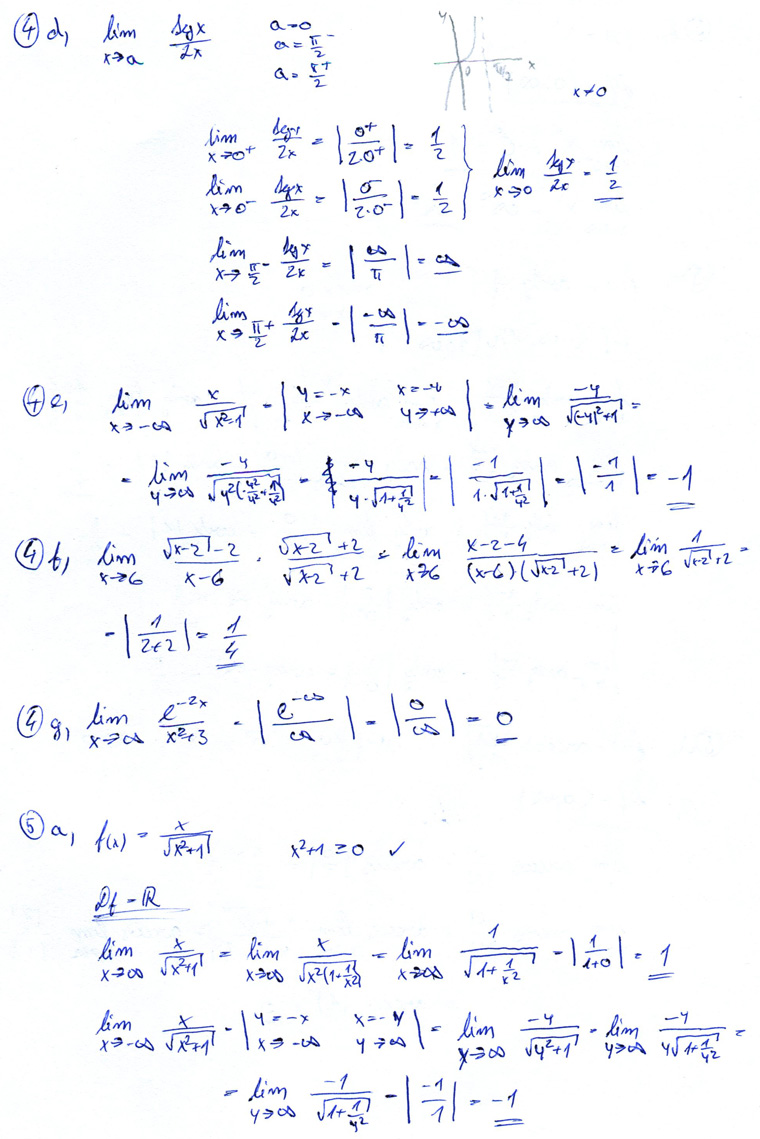 ④ d, lim x→a tg x / 2x a=0
a = π/2⁻
a = π/2⁺
y 0 π/2 x
x≠0
lim x→0⁺ tg x / 2x = |0⁺ / 2·0⁺| = 1/2
lim x→0⁻ tg x / 2x = |0⁻ / 2·0⁻| = 1/2 } lim x→0 tg x / 2x = 1/2
lim x→π/2⁻ tg x / 2x = |∞ / π| = ∞
lim x→π/2⁺ tg x / 2x = |-∞ / π| = -∞
④ e, lim x→-∞ x / √(x²+1) = | y=-x x=-y x→-∞ y→+∞ | = lim y→∞ -y / √((-y)²+1) =
= lim y→∞ -y / √(y²(y²/y²+1/y²)) = | -y / y·√(1+1/y²) | = | -1 / 1·√(1+1/y²) | = | -1 / 1 | = -1
④ f, lim x→6 (√(x-2) - 2) / (x-6) · (√(x-2) + 2) / (√(x-2) + 2) = lim x→6 (x-2-4) / (x-6)(√(x-2)+2) = lim x→6 1 / (√(x-2)+2) =
= | 1 / 2+2 | = 1/4
④ g, lim x→∞ e^(-2x) / (x²+3) = | e^(-∞) / ∞ | = | 0 / ∞ | = 0
⑤ a, f(x) = x / √(x²+1) x²+1 ≥ 0 ✓
Df = ℝ
lim x→∞ x / √(x²+1) = lim x→∞ x / √(x²(1+1/x²)) = lim x→∞ 1 / √(1+1/x²) = | 1 / 1+0 | = 1
lim x→-∞ x / √(x²+1) = | y=-x x=-y x→-∞ y→∞ | = lim y→∞ -y / √(y²+1) = lim y→∞ -y / y√(1+1/y²) =
= lim y→∞ -1 / √(1+1/y²) = | -1 / 1 | = -1